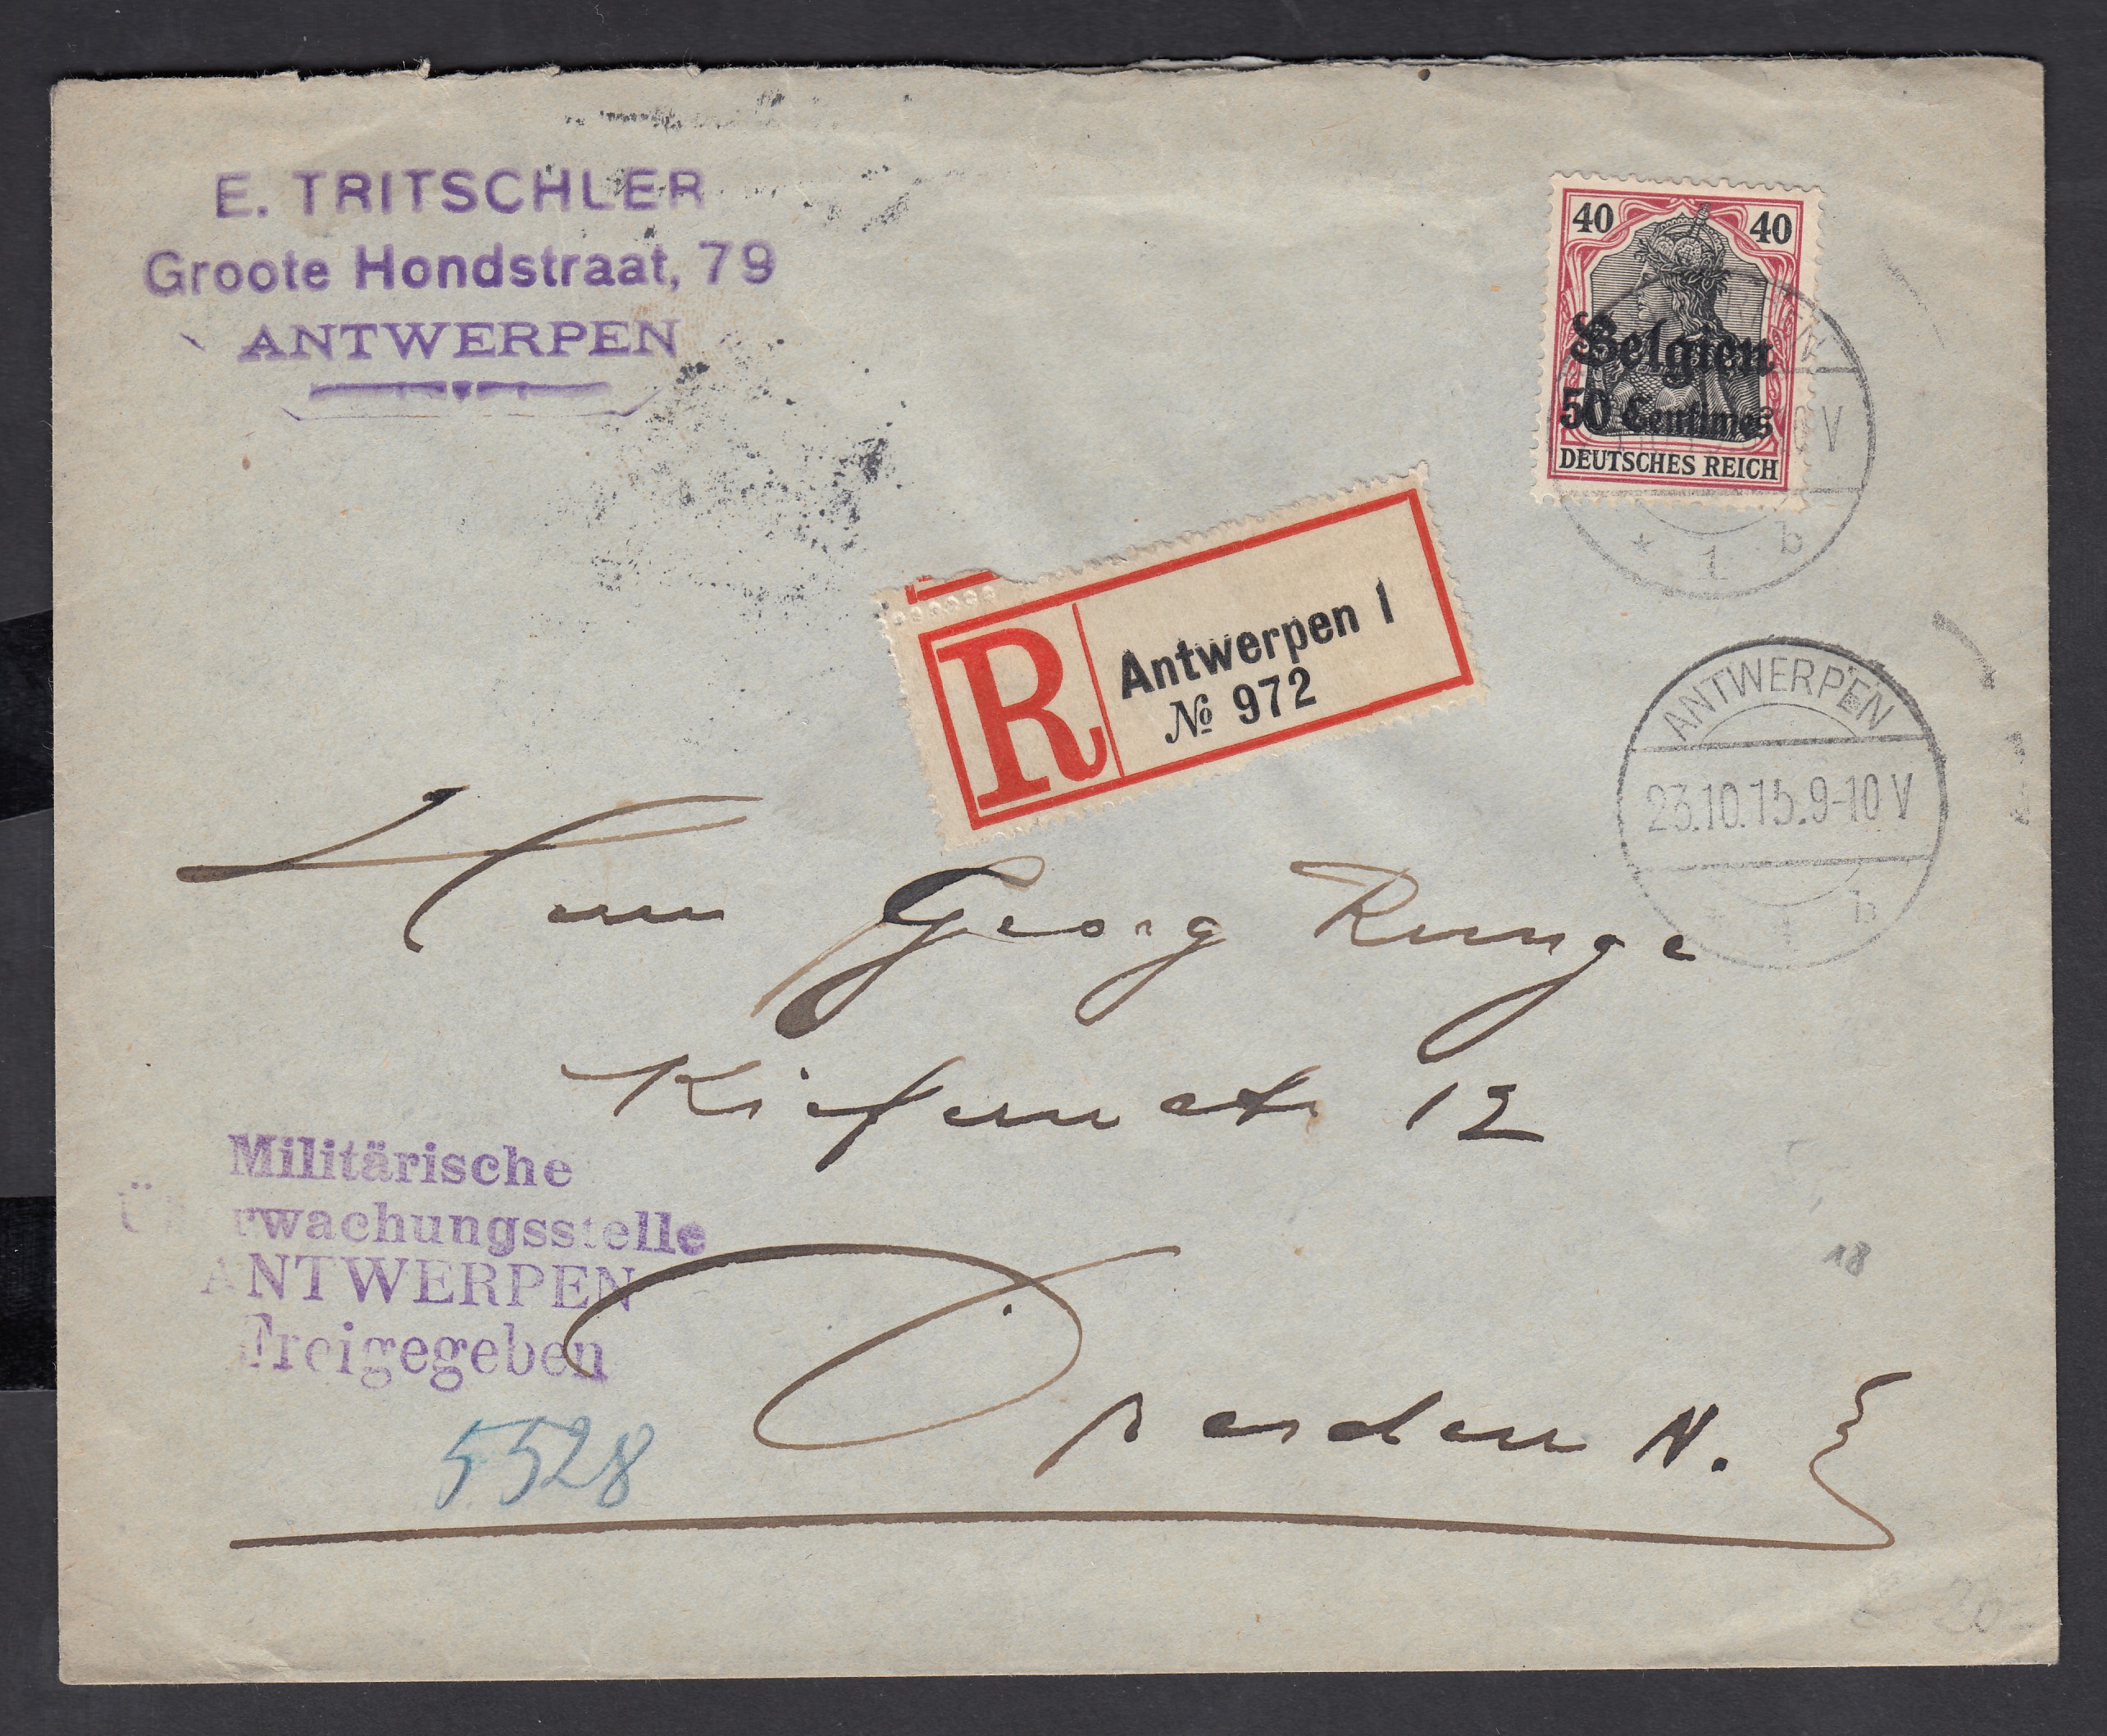 E. TRITSCHLER
Groote Hondstraat, 79
ANTWERPEN
40 40
Belgien
50 Centimes
DEUTSCHES REICH
10 V
* 1 b
R Antwerpen 1
№ 972
ANTWERPEN
23.10.15.9-10 V
* 1 b
Herrn Georg Runge
Kiefernstr 12
Dresden N.
Militärische
Überwachungsstelle
ANTWERPEN
Freigegeben
5528
18
20-